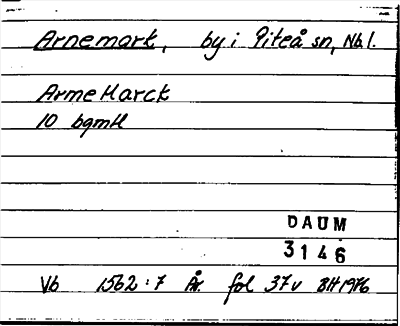 Arnemark, by i Piteå sn, Nb l.
Arme Harck
10 bgmH
DAUM
3146
Vb 1562:7 År. fol 37v BH 1976